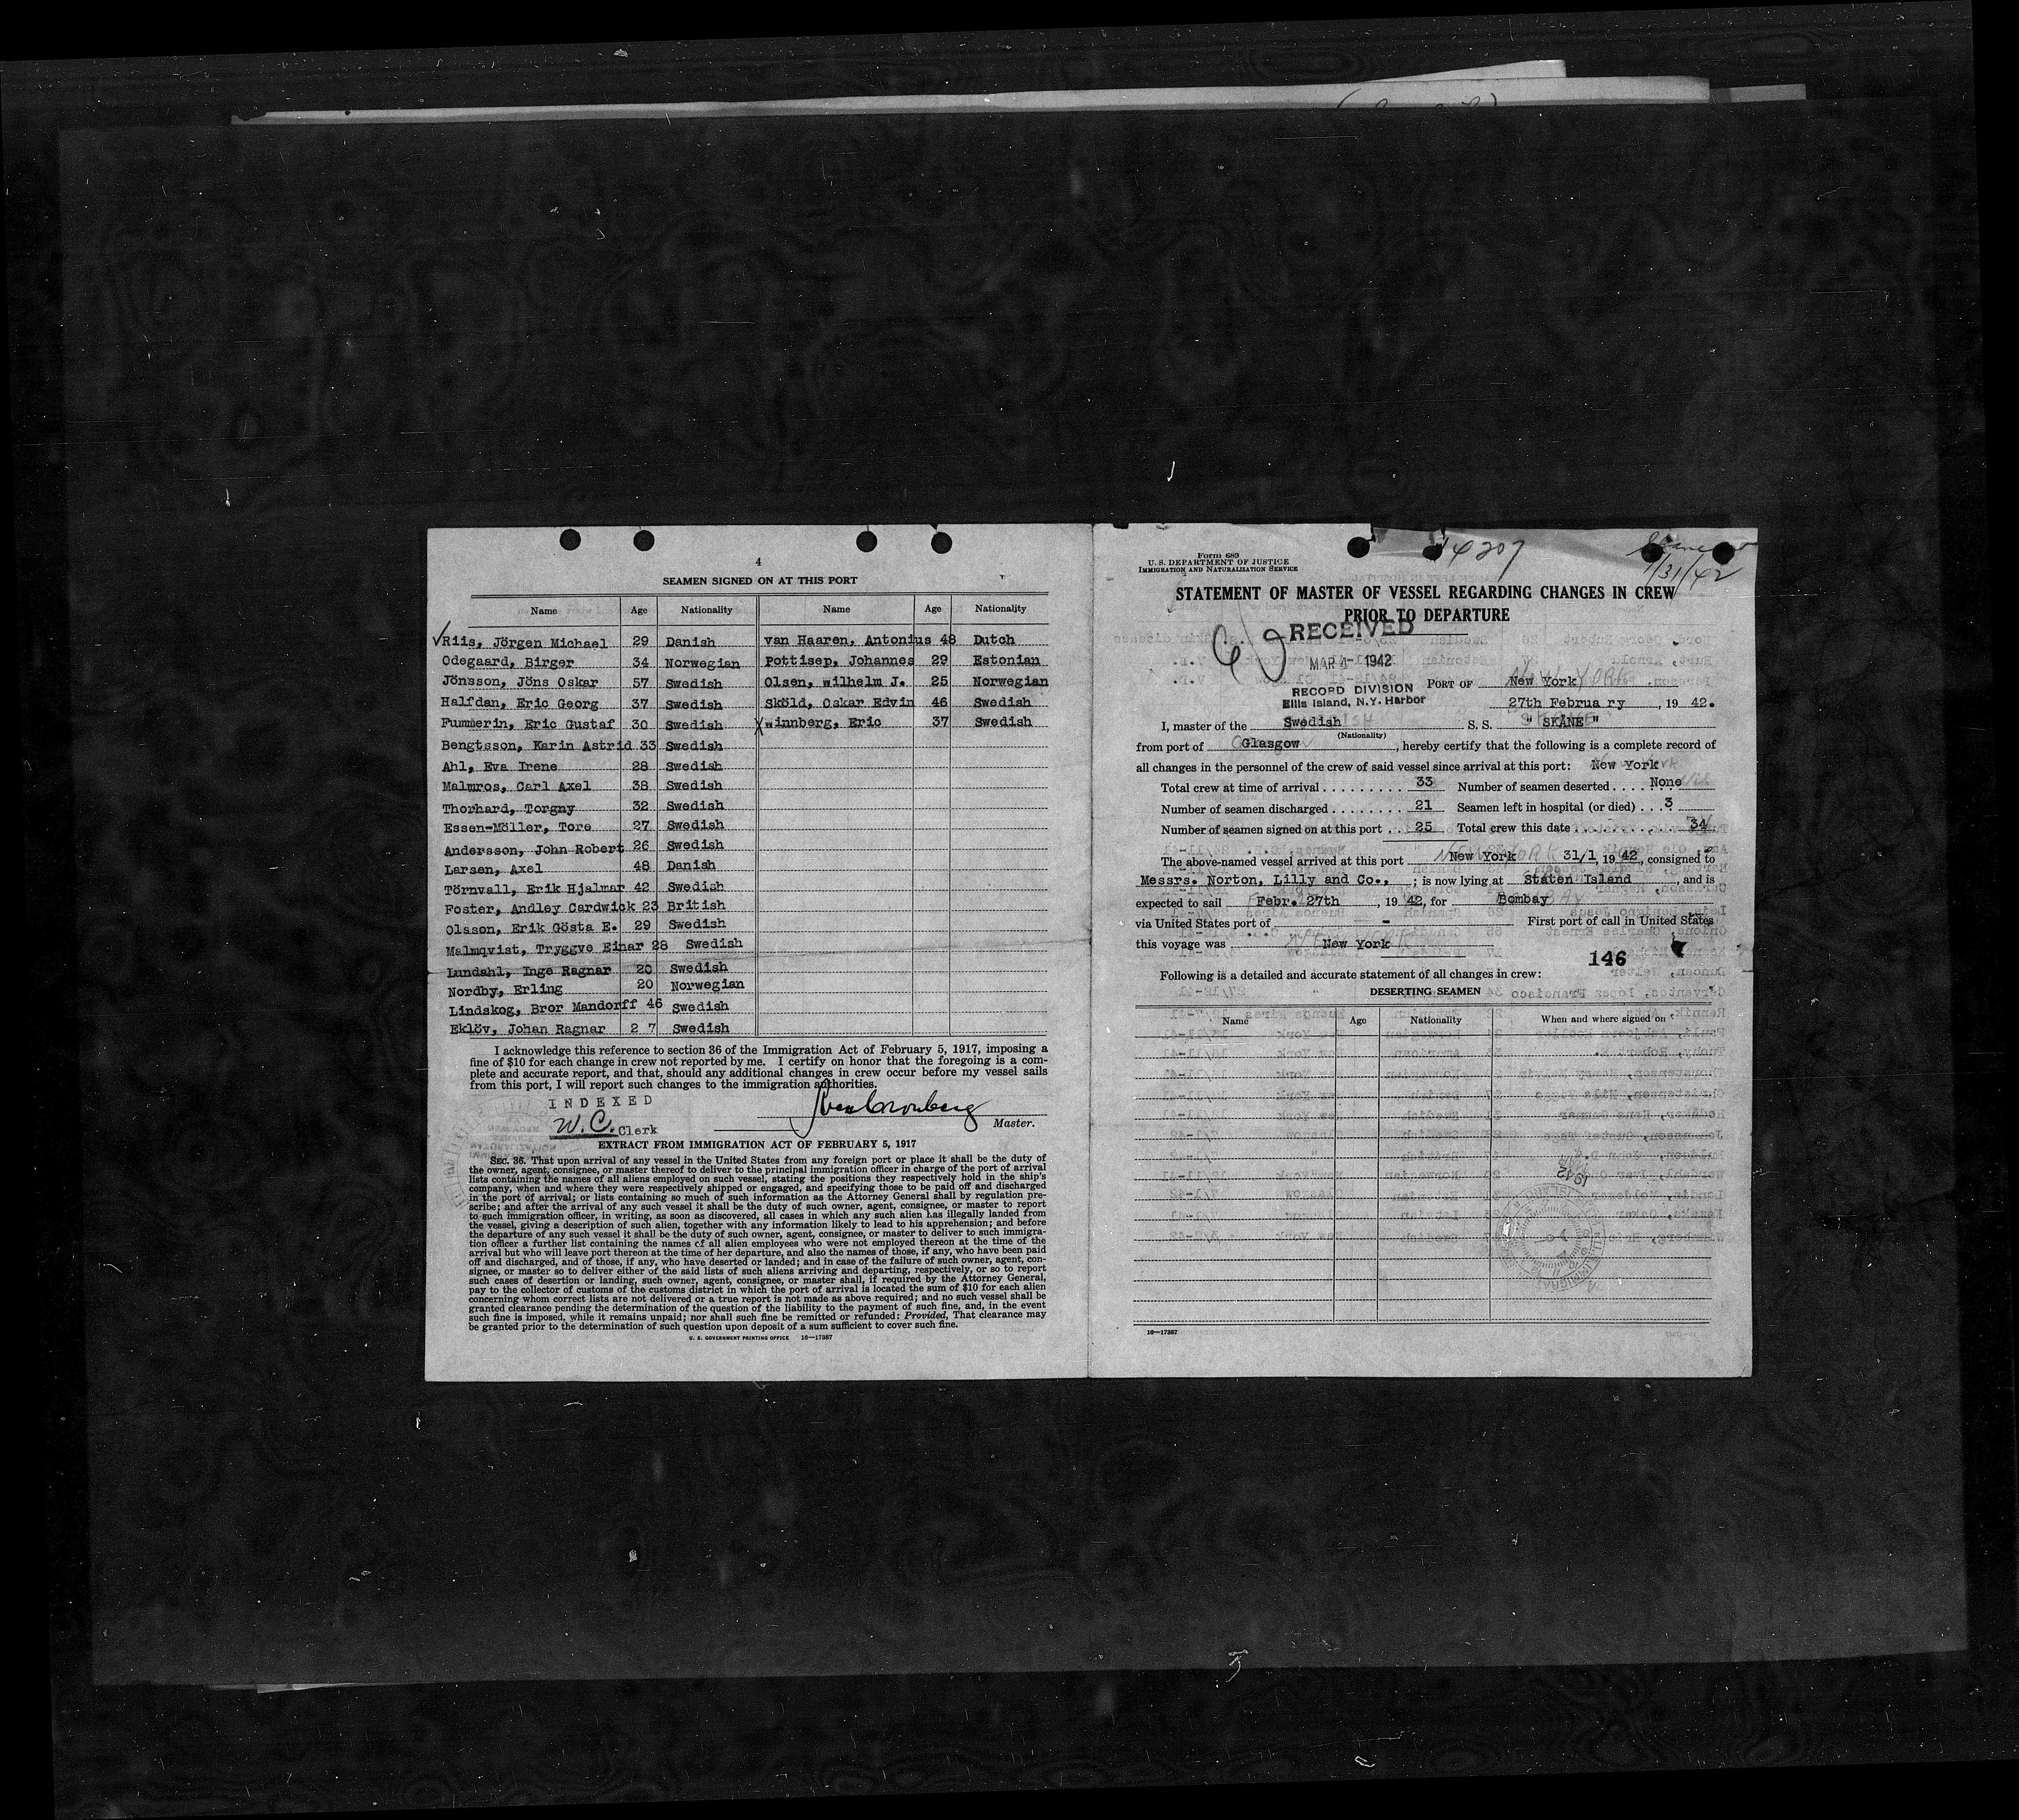 4
SEAMEN SIGNED ON AT THIS PORT
Name Age Nationality Name Age Nationality
Riis, Jörgen Michael 29 Danish van Haaren, Antonius 48 Dutch
Odegaard, Birger 34 Norwegian Pottisep, Johannes 29 Estonian
Jönsson, Jöns Oskar 57 Swedish Olsen, wilhelm J. 25 Norwegian
Halfdan, Eric Georg 37 Swedish Sköld, Oskar Edvin 46 Swedish
Fummerin, Eric Gustaf 30 Swedish winnberg, Eric 37 Swedish
Bengtsson, Karin Astrid 33 Swedish
Ahl, Eva Irene 28 Swedish
Malmros, Carl Axel 38 Swedish
Thorhard, Torgny 32 Swedish
Essen-Möller, Tore 27 Swedish
Andersson, John Robert 26 Swedish
Larsen, Axel 48 Danish
Törnvall, Erik Hjalmar 42 Swedish
Foster, Andley Cardwick 23 British
Olsson, Erik Gösta E. 29 Swedish
Malmqvist, Tryggve Einar 28 Swedish
Lundahl, Inge Ragnar 20 Swedish
Nordby, Erling 20 Norwegian
Lindskog, Bror Mandorff 46 Swedish
Eklöv, Johan Ragnar 2 7 Swedish
I acknowledge this reference to section 36 of the Immigration Act of February 5, 1917, imposing a
fine of $10 for each change in crew not reported by me. I certify on honor that the foregoing is a com-
plete and accurate report, and that, should any additional changes in crew occur before my vessel sails
from this port, I will report such changes to the immigration authorities.
INDEXED
W. C. Clerk
Master.
EXTRACT FROM IMMIGRATION ACT OF FEBRUARY 5, 1917
SEC. 36. That upon arrival of any vessel in the United States from any foreign port or place it shall be the duty of
the owner, agent, consignee, or master thereof to deliver to the principal immigration officer in charge of the port of arrival
lists containing the names of all aliens employed on such vessel, stating the positions they respectively hold in the ship's
company, when and where they were respectively shipped or engaged, and specifying those to be paid off and discharged
in the port of arrival; or lists containing so much of such information as the Attorney General shall by regulation pre-
scribe; and after the arrival of any such vessel it shall be the duty of such owner, agent, consignee, or master to report
to such immigration officer, in writing, as soon as discovered, all cases in which any such alien has illegally landed from
the vessel, giving a description of such alien, together with any information likely to lead to his apprehension; and before
the departure of any such vessel it shall be the duty of such owner, agent, consignee, or master to deliver to such immigra-
tion officer a further list containing the names of all alien employees who were not employed thereon at the time of the
arrival but who will leave port thereon at the time of her departure, and also the names of those, if any, who have been paid
off and discharged, and of those, if any, who have deserted or landed; and in case of the failure of such owner, agent, con-
signee, or master so to deliver either of the said lists of such aliens arriving and departing, respectively, or so to report
such cases of desertion or landing, such owner, agent, consignee, or master shall, if required by the Attorney General,
pay to the collector of customs of the customs district in which the port of arrival is located the sum of $10 for each alien
concerning whom correct lists are not delivered or a true report is not made as above required; and no such vessel shall be
granted clearance pending the determination of the question of the liability to the payment of such fine, and, in the event
such fine is imposed, while it remains unpaid; nor shall such fine be remitted or refunded: Provided, That clearance may
be granted prior to the determination of such question upon deposit of a sum sufficient to cover such fine.
U. S. GOVERNMENT PRINTING OFFICE 16—17387
Form 689
U. S. DEPARTMENT OF JUSTICE
IMMIGRATION AND NATURALIZATION SERVICE
14207
1/31/42
STATEMENT OF MASTER OF VESSEL REGARDING CHANGES IN CREW
PRIOR TO DEPARTURE
RECEIVED
MAR 4- 1942
RECORD DIVISION
Ellis Island, N.Y. Harbor
PORT OF New York
27th Februa ry, 19 42.
I, master of the Swedish S. S. " SKÅNE "
(Nationality)
from port of Glasgow, hereby certify that the following is a complete record of
all changes in the personnel of the crew of said vessel since arrival at this port: New York
Total crew at time of arrival . . . . . . . . . 33 Number of seamen deserted . . . . None
Number of seamen discharged . . . . . . . 21 Seamen left in hospital (or died) . . . 3
Number of seamen signed on at this port . . 25 Total crew this date . . . . . . . . . 34
The above-named vessel arrived at this port New York 31/1, 19 42, consigned to
Messrs. Norton, Lilly and Co., ; is now lying at Staten Island, and is
expected to sail Febr. 27th, 19 42, for Bombay
via United States port of - First port of call in United States
this voyage was New York
146
Following is a detailed and accurate statement of all changes in crew:
DESERTING SEAMEN
Name Age Nationality When and where signed on
16—17387